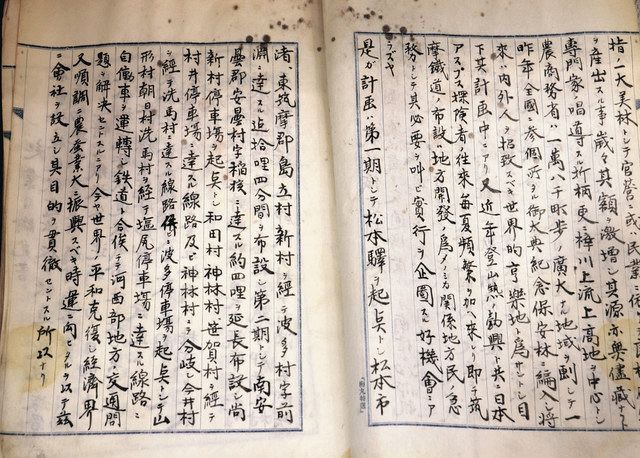 指一大美林トシテ官営ニ或ハ民業ニ依
ヲ産出スル事歳々其額激増シ其源亦奥儘蔵
専門家ノ唱導スル折柄更ニ梓川上流上高地ヲ中心トシ
農商務省ハ一萬八千町歩ノ廣大ナル地域ヲ劃シテ一
昨年全國ニ参個所タル御大典紀念保安林ニ編入シ将
来ハ内外人ヲ招致スベキ世界的享楽地ト為サントシ目
下其計画中ニアリ又近年登山熱ノ勃興ト共ニ日本
アルプス探険者ノ往来毎夏頻繁ヲ加ヘ来リ即チ筑
摩鐵道ノ布設ハ地方開発ノ為メノミナラズ関係地方民ノ急
務トシテ其必要ヲ叫ビ實行ヲ企圖スベキ好機會ニア
ラズヤ
是ガ計画ハ第一期トシテ松本驛ヲ起点トシ松本市
渚、東筑摩郡島立村新村ヲ経テ波多村字前
渕ニ達スル延拾哩四分間ヲ布設シ第二期トシテ南安
曇郡安曇村字稲核ニ達スル約四哩ヲ延長布設シ尚
新村停車場ヲ起点トシ和田村神林村笹賀村ヲ経テ
村井停車場ニ達スル線路及ビ神林村ヨリ分岐シ今井村
ヲ経テ洗馬村ニ達スル線路並ニ波多停車場ヲ起点トシテ山
形村朝日村洗馬村ヲ経テ塩尻停車場ニ達スル線路ニ
自働車ヲ運轉シ鉄道ト合俟チテ河西部地方ノ交通問
題ヲ解決セントスルニアリ今ヤ世界ノ平和克復シ経済界
又順調ニ農産業大ニ振興スベキ時運ニ向ヒタルヲ以テ茲
ニ會社ヲ設立シ其目的ヲ貫徹セントスル所以ナリ